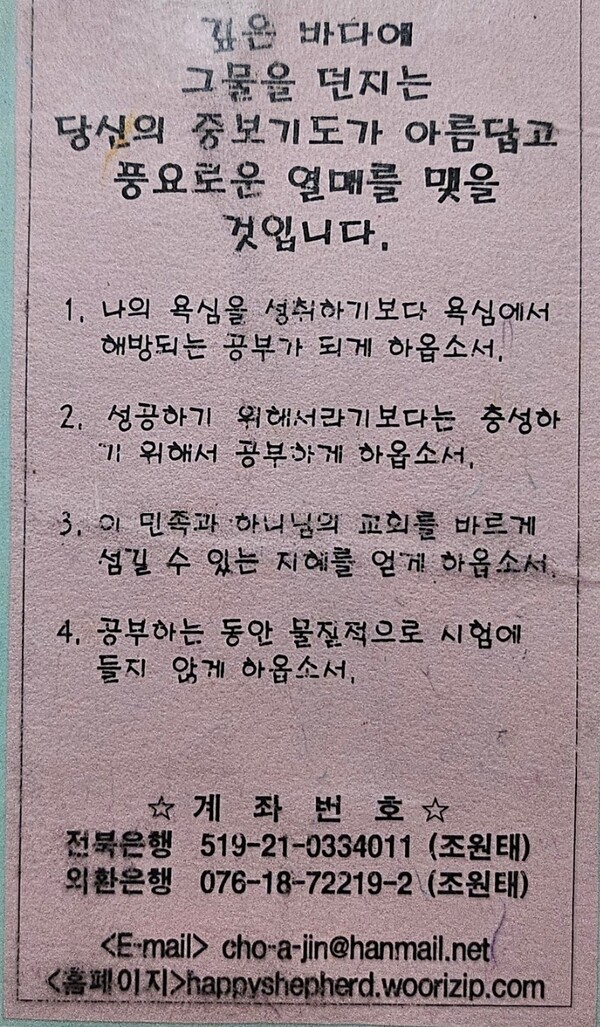 깊은 바다에
그물을 던지는
당신의 중보기도가 아름답고
풍요로운 열매를 맺을
것입니다.
1. 나의 욕심을 성취하기보다 욕심에서
해방되는 공부가 되게 하옵소서.
2. 성공하기 위해서라기보다는 충성하
기 위해서 공부하게 하옵소서.
3. 이 민족과 하나님의 교회를 바르게
섬길 수 있는 지혜를 얻게 하옵소서.
4. 공부하는 동안 물질적으로 시험에
들지 않게 하옵소서.
☆ 계 좌 번 호 ☆
전북은행 519-21-0334011 (조원태)
외환은행 076-18-72219-2 (조원태)
<E-mail> cho-a-jin@hanmail.net
<홈페이지>happyshepherd.woorizip.com